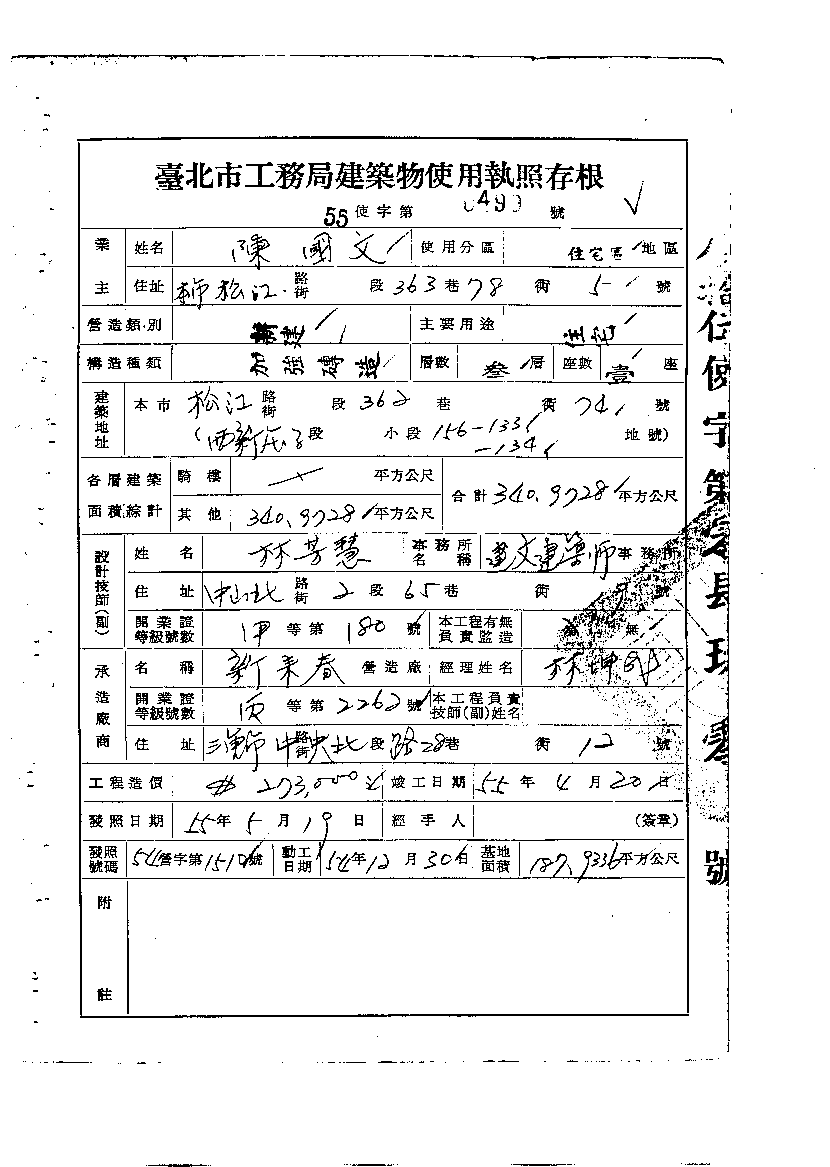 臺北市工務局建築物使用執照存根
55使字第 0490 號
業主 姓名 陳國文 使用分區 住宅區 地區
住址 本市松江路街 段363巷78衖5號
營造類別 新建 主要用途 住宅
構造種類 加強磚造 層數 叁層 座數 壹座
建築地址 本市 松江路街 段362巷 衖74號
(西新庄子段 小段156-133 -134 地號)
各層建築面積綜計 騎樓 平方公尺 合計340.9728平方公尺
其他 340.9728平方公尺
設計技師(副) 姓名 林芳慧 事務所名稱 建文建築師事務所
住址 中山北路街2段65巷 衖 9號
開業證等級號數 甲等第180號 本工程有無負責監造 無
承造廠商 名稱 新來春營造廠 經理姓名 林坤
開業證等級號數 丙等第2262號 本工程負責技師(副)姓名
住址 三重市中央北路街段路28巷 衖12號
工程造價 273,000 竣工日期 55年4月20日
發照日期 55年5月19日 經手人 (簽章)
發照號碼 54營字第1510號 動工日期 54年12月30日 基地面積 187.9336平方公尺
附註
使字第零肆玖零號